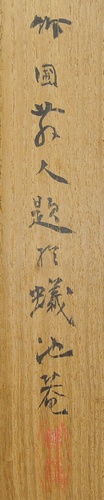 竹國散人題於蟻池菴